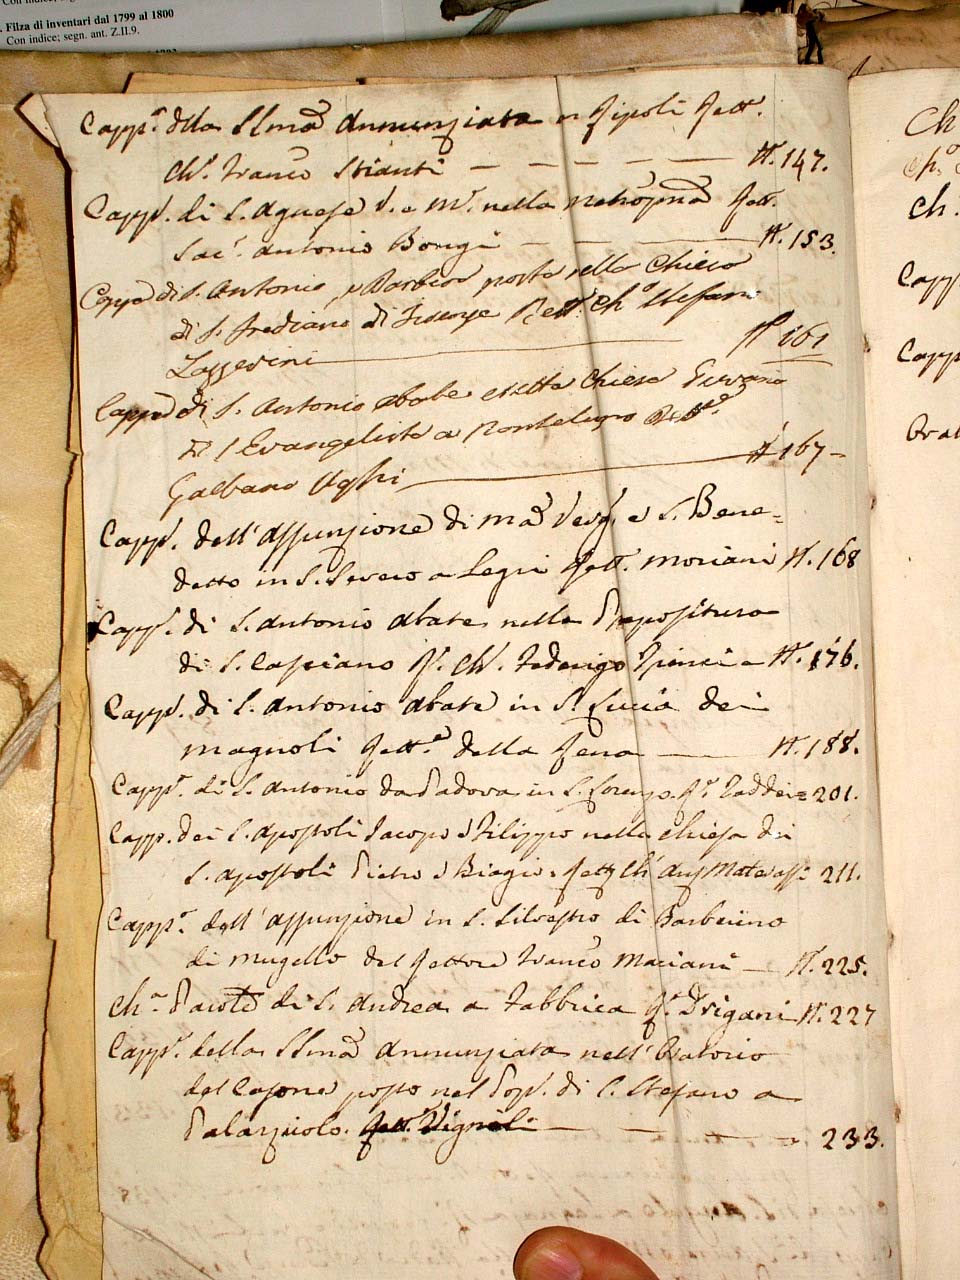 Con indice; segn. ant.
. Filza di inventari dal 1799 al 1800
Con indice; segn. ant. Z.II.9.
Capp.ª dlla SSma Annunziata a Ripoli Rett.
Ch.º Franco Stianti — N. 147.
Capp. di S. Agnese V. e M. nella Metropna Rett.
Sac. Antonio Bongi — N. 153.
Capp di S. Antonio, e Barbera posta nella Chiesa
di S. Frediano di Firenze Rett. Ch.º Stefano
Lazzerini — N 161
Capp di S. Antonio Abate eretta Chiesa
di S Evangelista a Montelupo Rett.e
Galbano Ughi — N 167-
Capp. dell'Assunzione di Ma Verg. e S. Bene=
detto in S. Severo a Legri Rett. Moriani N. 168
Capp. di S. Antonio Abate nella Prepositura
di S. Casciano R. Ch. Federigo N. 176.
Capp. di S. Antonio Abate in S. Lucia dei
Magnoli Rett.e della Rena — N. 188.
Capp.ª di S. Antonio da Padova in S. Lorenzo R.e Taddei = 201.
Capp. dei S. Apostoli Jacopo e Filippo nella Chiesa dei
S. Apostoli Pietro e Biagio. Rett Ch. 211.
Capp.ª dell'Assunzione in S. Silvestro di Barberino
di Mugello del Rettore Franco Mariani — N. 225.
Ch.ª di S. Andrea a Fabbrica R.e Drigani N. 227
Capp.ª della SSma Annunziata nell'Oratorio
del Casone posto nel Pop. di S. Stefano a
Palazuolo. Rett. Vignoli — 233.
Ch
Ch.
Capp
Capp
Orat